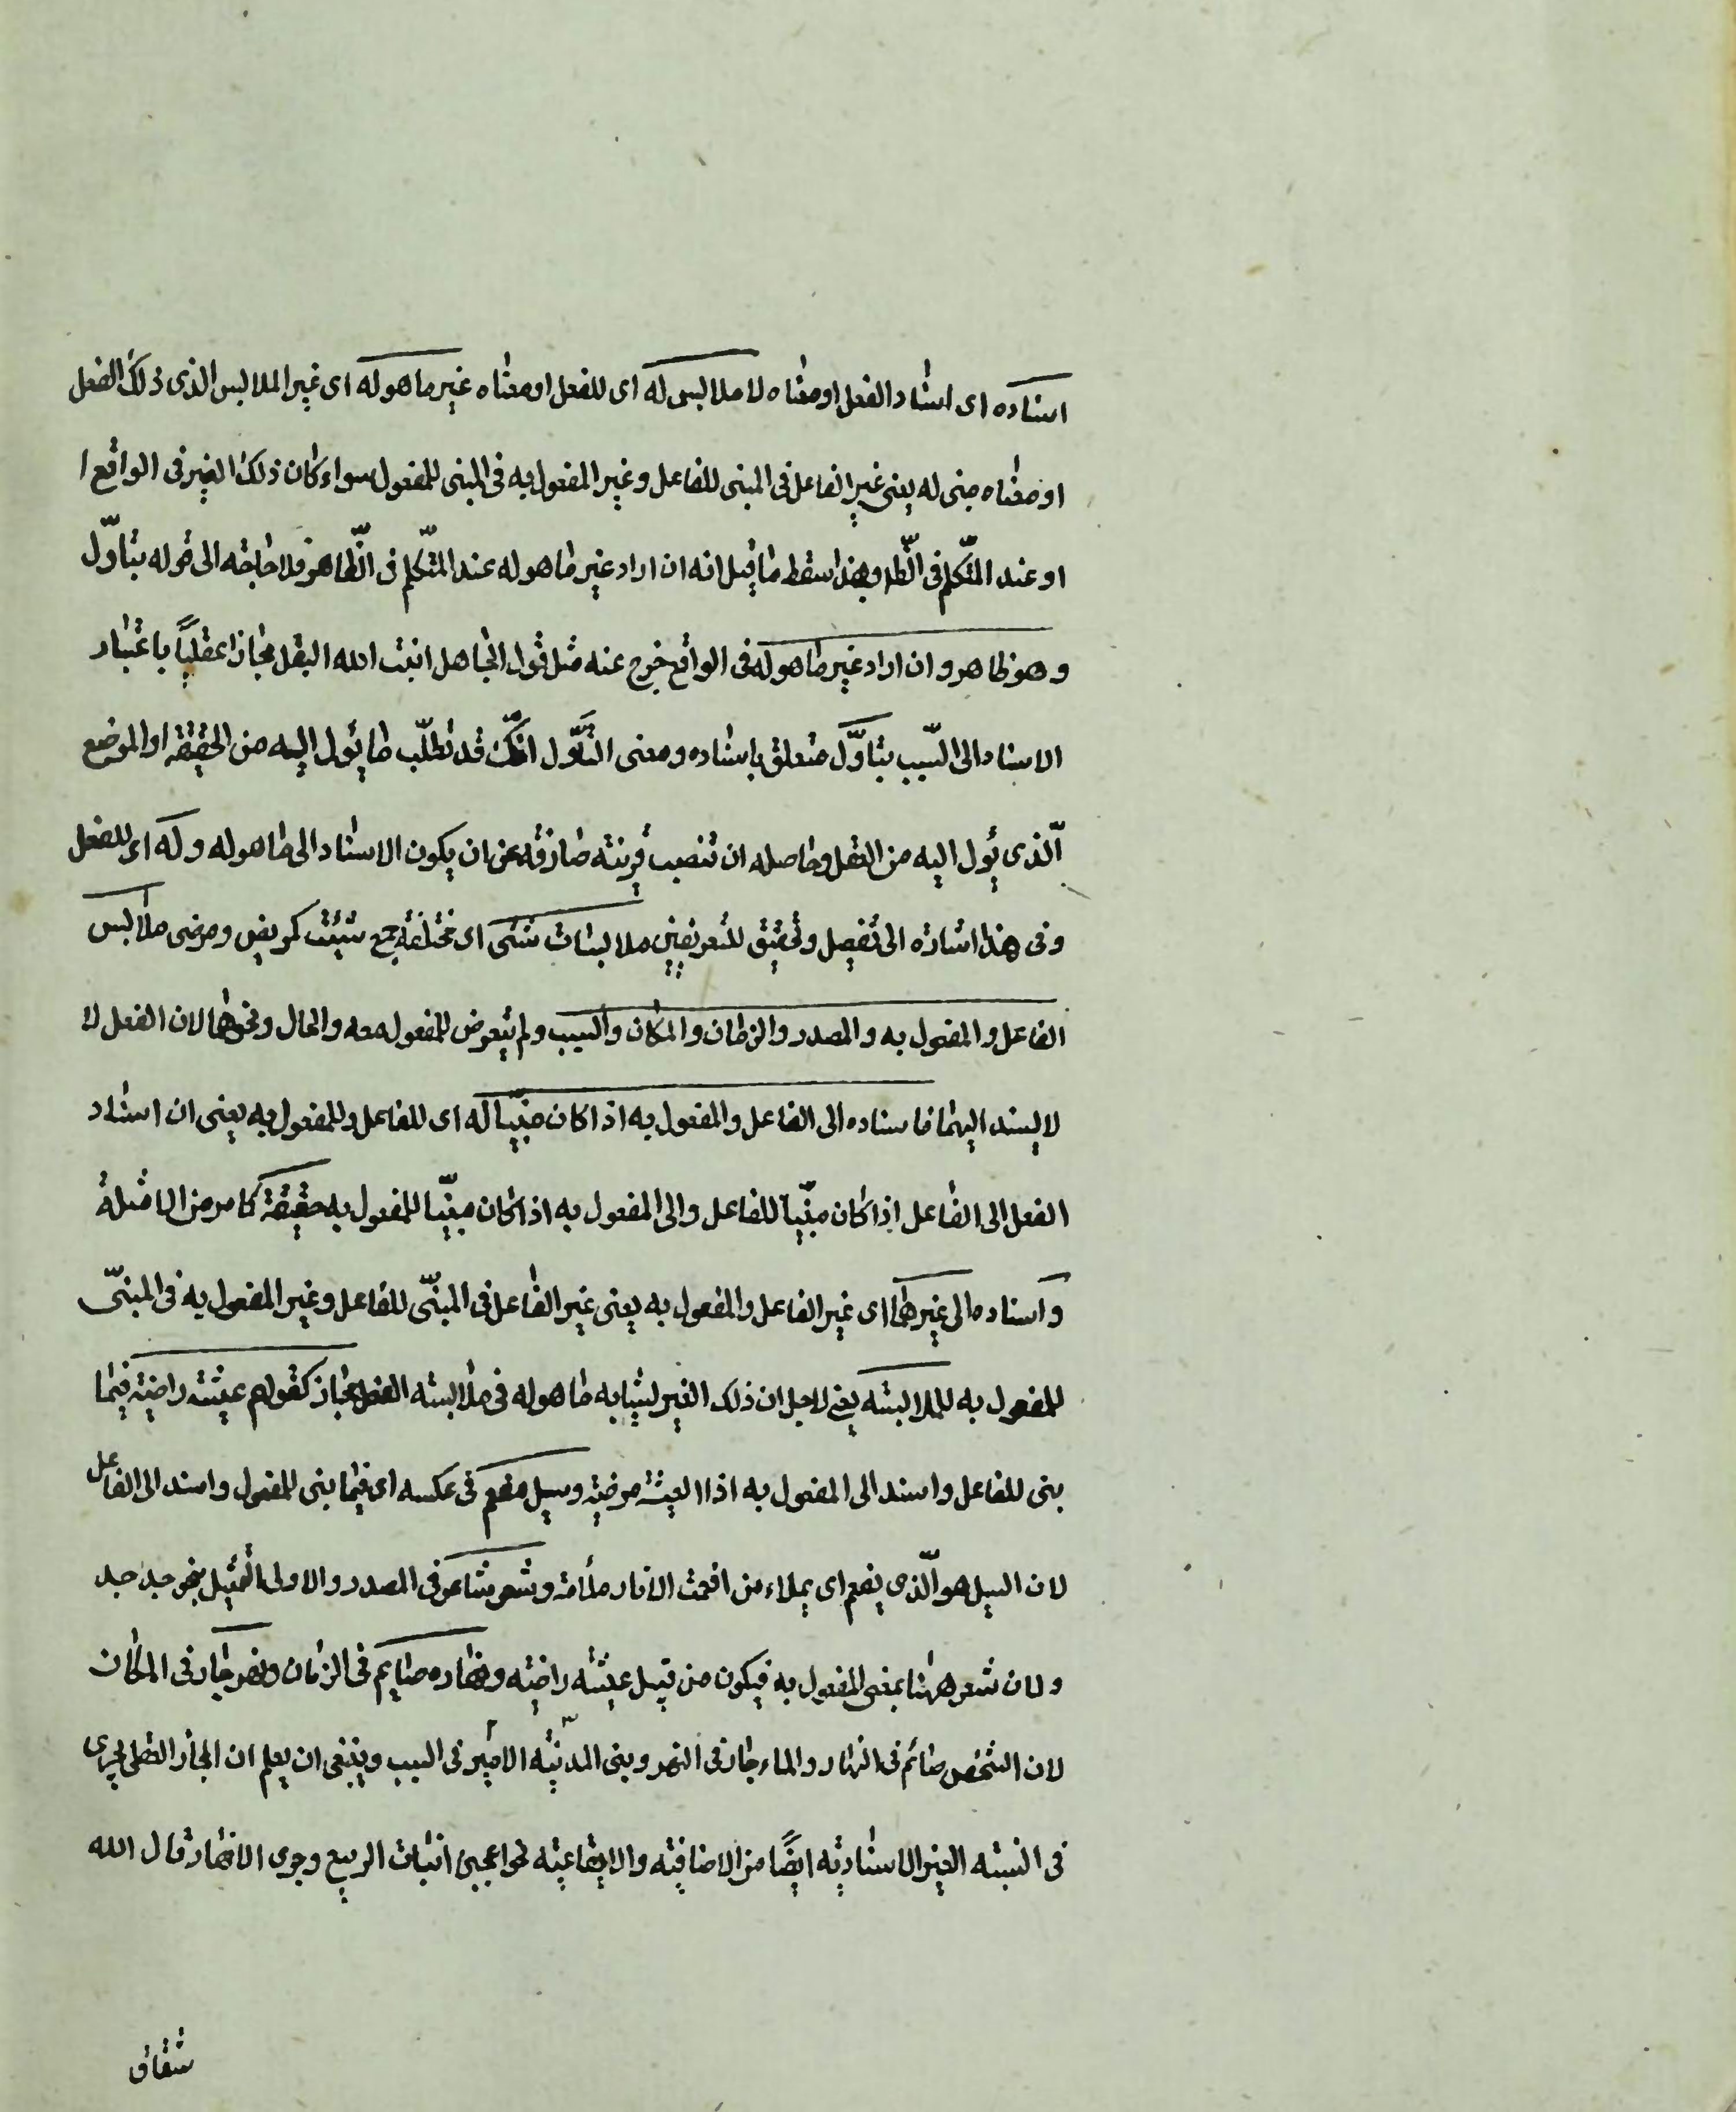 اسناده اى اسناد الفعل او معناه لا ملابس له اى للفعل او معناه غير ما هو له اى غير الملابس الذى ذلك الفعل
او معناه مبنى له يعنى غير الفاعل فى المبنى للفاعل و غير المفعول به فى المبنى للمفعول سواء كان ذلك الغير فى الواقع ا
او عند المتكلم فى الظ وبهذا سقط ما قيل انه ان اراد غير ما هو له عند المتكلم فى الظاهر فلا حاجة الى قوله بتاوّل
و هو ظاهر و ان اراد غير ما هو له فى الواقع خرج عنه مثل قول الجاهل انبت الله البقل مجازا عقليّاً باعتبار
الاسناد الى السّبب بتاوّل متعلق باسناده و معنى التأوّل انّك قد تطلّب ما يئول اليه من الحقيقة او الموضع
الّذى يئول اليه من العقل وحاصله ان تنصب قرينة صارفة عن ان يكون الاسناد الى ما هو له و له اى للفعل
و فى هذا اشارة الى تفصيل و تحقيق للتعريفين ملابسات شتى اى مختلفة جمع شتيت كمريض و مرضى ملابس
الفاعل و المفعول به و المصدر و الزمان و المكان و السبب و لم يتعرض للمفعول معه و الحال و نحوهما لان الفعل لا
لا يسند اليهما فاسناده الى الفاعل و المفعول به اذا كان مبنيّا له اى للفاعل و للمفعول به يعنى ان اسناد
الفعل الى الفاعل اذا كان مبنيّا للفاعل و الى المفعول به اذا كان مبنيّا للمفعول به حقيقة كما مر من الامثلة
و اسناده الى غيرهما اى غير الفاعل و المفعول به يعنى غير الفاعل فى المبنّى للفاعل و غير المفعول به فى المبنّى
للمفعول به للملابسة يعنى لاجل ان ذلك الغير يشابه ما هو له فى ملابسة الفعل مجاز كقولهم عيشة راضية فيما
بنى للفاعل و اسند الى المفعول به اذا العيشة مرضية و سيل مفعم فى عكسه اى فيما بنى للمفعول و اسند الى الفاعل
لان السيل هو الّذى يفعم اى يملاء من افعمت الاناء ملأته و شعر شاعر فى المصدر و الاولى التمثيل بنحو جد جد
و لان شعر ههنا بمعنى المفعول به فيكون من قبيل عيشة راضية و نهاره صايم فى الزمان و نهر جار فى المكان
لان الشخص صائم فى النهار و الماء جار فى النهر و بنى المدنية الامير فى السبب و ينبغى ان يعلم ان المجاز العقلى يجرى
فى النسبة الغير الاسنادية ايضًا من الاضافية و الايقاعية نحو اعجبنى انبات الربيع و جرى الانهار قال الله
شقاق